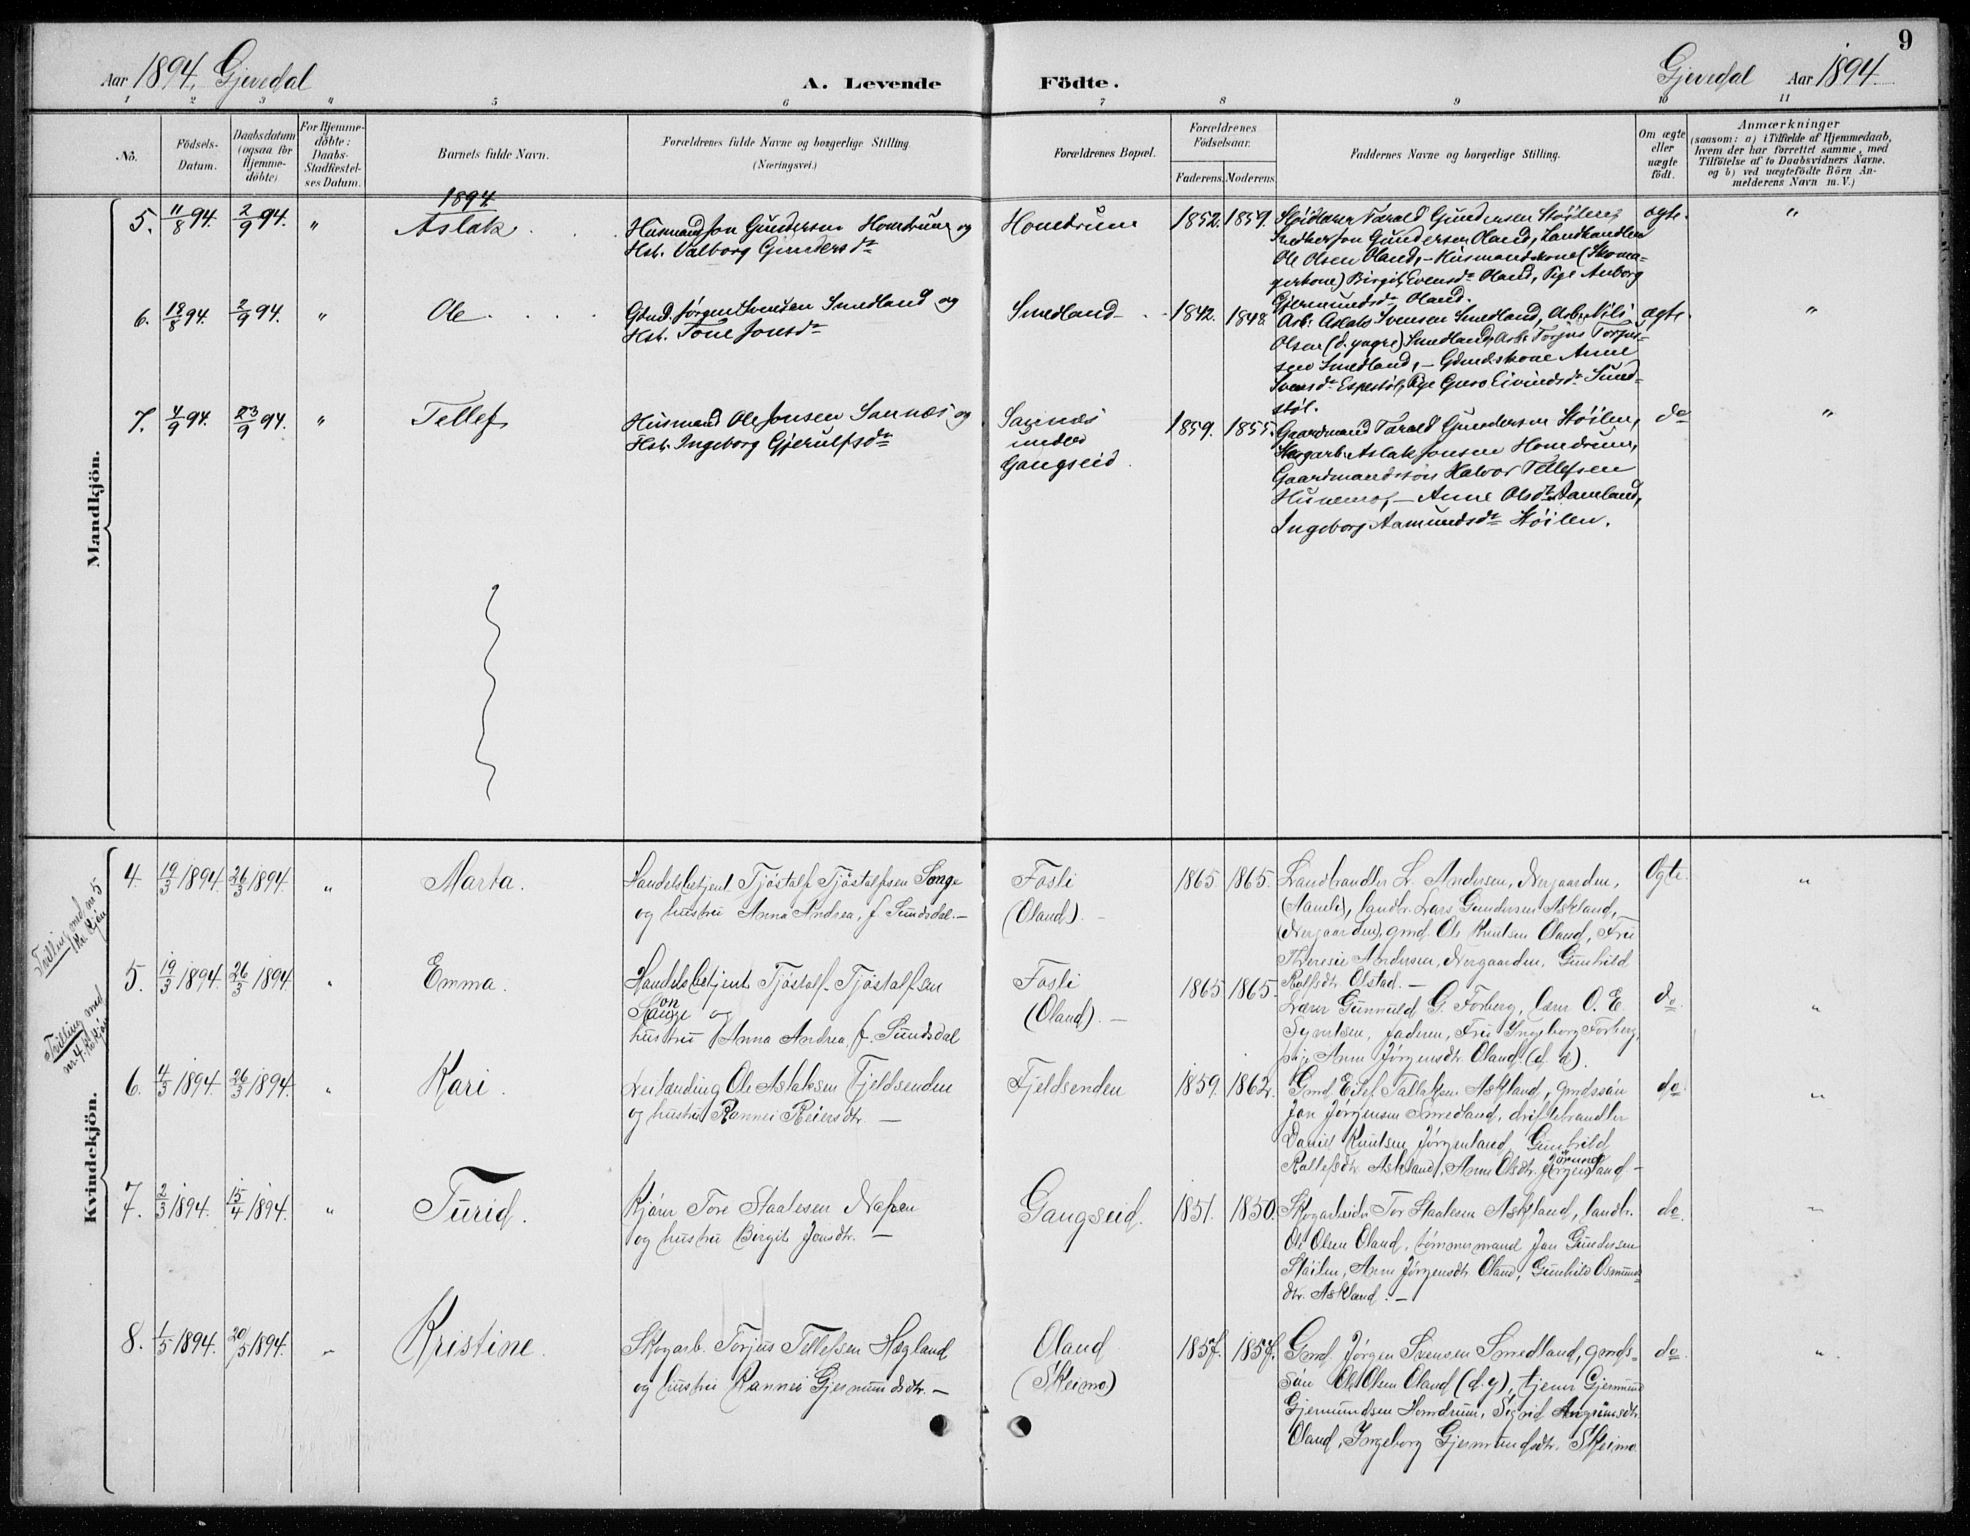 9
Aar 1894. Gjevedal
A. Levende Födte.
Gjevedal Aar 1894
1 2 3 4 5 6 7 8 9 10 11
No.
Födsels-
Datum.
Daabsdatum
(ogsaa for
Hjemme-
döbte)
For Hjemme-
döbte:
Daabs-
Stadfæstel-
ses Datum.
Barnets fulde Navn.
Forældrenes fulde Navne og borgerlige Stilling.
(Næringsvei.)
Forældrenes Bopæl.
Forældrenes
Födselsaar.
Faderens. Moderens.
Faddernes Navne og borgerlige Stilling.
Om ægte
eller
uægte
födt.
Anmærkninger
(saasom: a) i Tilfælde af Hjemmedaab,
hvem der har forrettet samme, med
Tilföielse af to Daabsvidners Navne,
og b) ved uægtefödte Börn An-
melderens Navn m. V.)
Mandkjön.
1894
5. 11/8 94. 2/9 94. " Aslak
Husmand Jon Gundersen Homdrum og
Hst. Valborg Gundersdr
Homdrum 1852. 1859.
Tarald Gundersen Støilen,
Jon Gundersen Oland, Landhandler
Ole Olsen Oland, – Husmandskone (Skoma-
gerkone) Birgit Evensdr Oland, Pige Anborg
Gjermundsdr Oland.
ægte. "
6. 18/8 94. 2/9 94. " Ole
Gmd. Jørgen Svensen Smedland og
Hst. Tone Jonsdr
Smedland 1842. 1848
Arb. Aslak Svensen Smedland, Arb. Nils
Olsen (d. yngre) Smedland, Arb. Torjus Torjus-
sen Smedland, – Gmdskone Anne
Svensdr Espestøl, Pige Guro Eivindsdr Smed-
støl.
ægte. "
7. 4/9 94. 23/9 94. " Tellef
Husmand Ole Jonsen Sannæs og
Hst. Ingeborg Gjerulfsdr
Sannæs
under
Gangseid.
1859. 1855.
Gaardmand Tarald Gundersen Støilen,
Skogarb. Aslak Jonsen Homdrum,
Gaardmandssøn Halvor Tellefsen
– Anne Olsdr Aamland,
Ingeborg Aamundsdr Støilen.
do "
Kvindekjön.
Tvilling med nr 5
Kv. Kjön
4. 19/3 1894. 26/3 1894. " Marta.
Handelsbetjent Tjöstalf Tjöstalfsen Songe
og hustru Anna Andrea, f. Sundsdal. –
Fosli
(Oland). –
1865. 1865.
Landhandler L. Andersen, Nergaarden,
(Aamli), landbr. Lars Gundersen Askland, –
(Nergaarden), gmd. Ole Knutsen Oland, Fru
Theresie Andersen, Nergaarden, Gunhild
Rolfsdt. Olstad. –
Ægte. "
Tvilling med
nr 4. Kv. Kjön
5. 19/3 1894. 26/3 1894. " Emma.
Handelsbetjent Tjöstalf Tjöstalfsen
Songe og
hustru Anna Andrea, f. Sundsdal
Fosli
(Oland). –
1865 1865.
Lærer Gunnuld G. Forberg, lærer O. E.
Syvertsen, Jaderen, Fru Ingeborg Forberg,
pige Anne Jörgensdtr. Oland (d. æ).
do. "
6. 4/3 1894. 26/3 1894. " Kari.
Ole Aslaksen Fjeldsenden
og hustru Rannei Reiersdtr. –
Fjeldsenden 1859. 1862.
Gmd. Eilef Tallaksen Askland, gmdssøn
Jon Jörgensen Smedland, driftehandler
Daniel Knutsen Jörgenland, Gunhild
Rollefsdtr. Askland, Anne Olsdtr. Jörundland –
do. "
7. 2/3 1894. 15/4 1894. " Turid.
Kjörer Tore Staalesen Næssen
og hustru Birgit Jonsdtr. –
Gangseid. 1851. 1850.
Skogarbeider Tor Staalesen Askland, landbr.
Ole Olsen Oland, tömmermand Jon Gundersen
Støilen, Anne Jörgensdtr. Oland, Gunhild Osmunds-
dtr. Askland. –
do. "
8. 1/5 1894. 20/5 1894. " Kristine.
Skogarb. Torjus Tellefsen Hægland
og hustru Rannei Gjermundsdtr. –
Oland
(Skeimo)
1857. 1857.
Gmd. Jörgen Svensen Smedland, gmds-
søn Ole Olsen Oland (d. y), tjener Gjermund
Gjermundsen Homdrum, Sigrid Angrimsdtr.
Oland, Ingeborg Gjermundsdtr. Skeimo
do. "